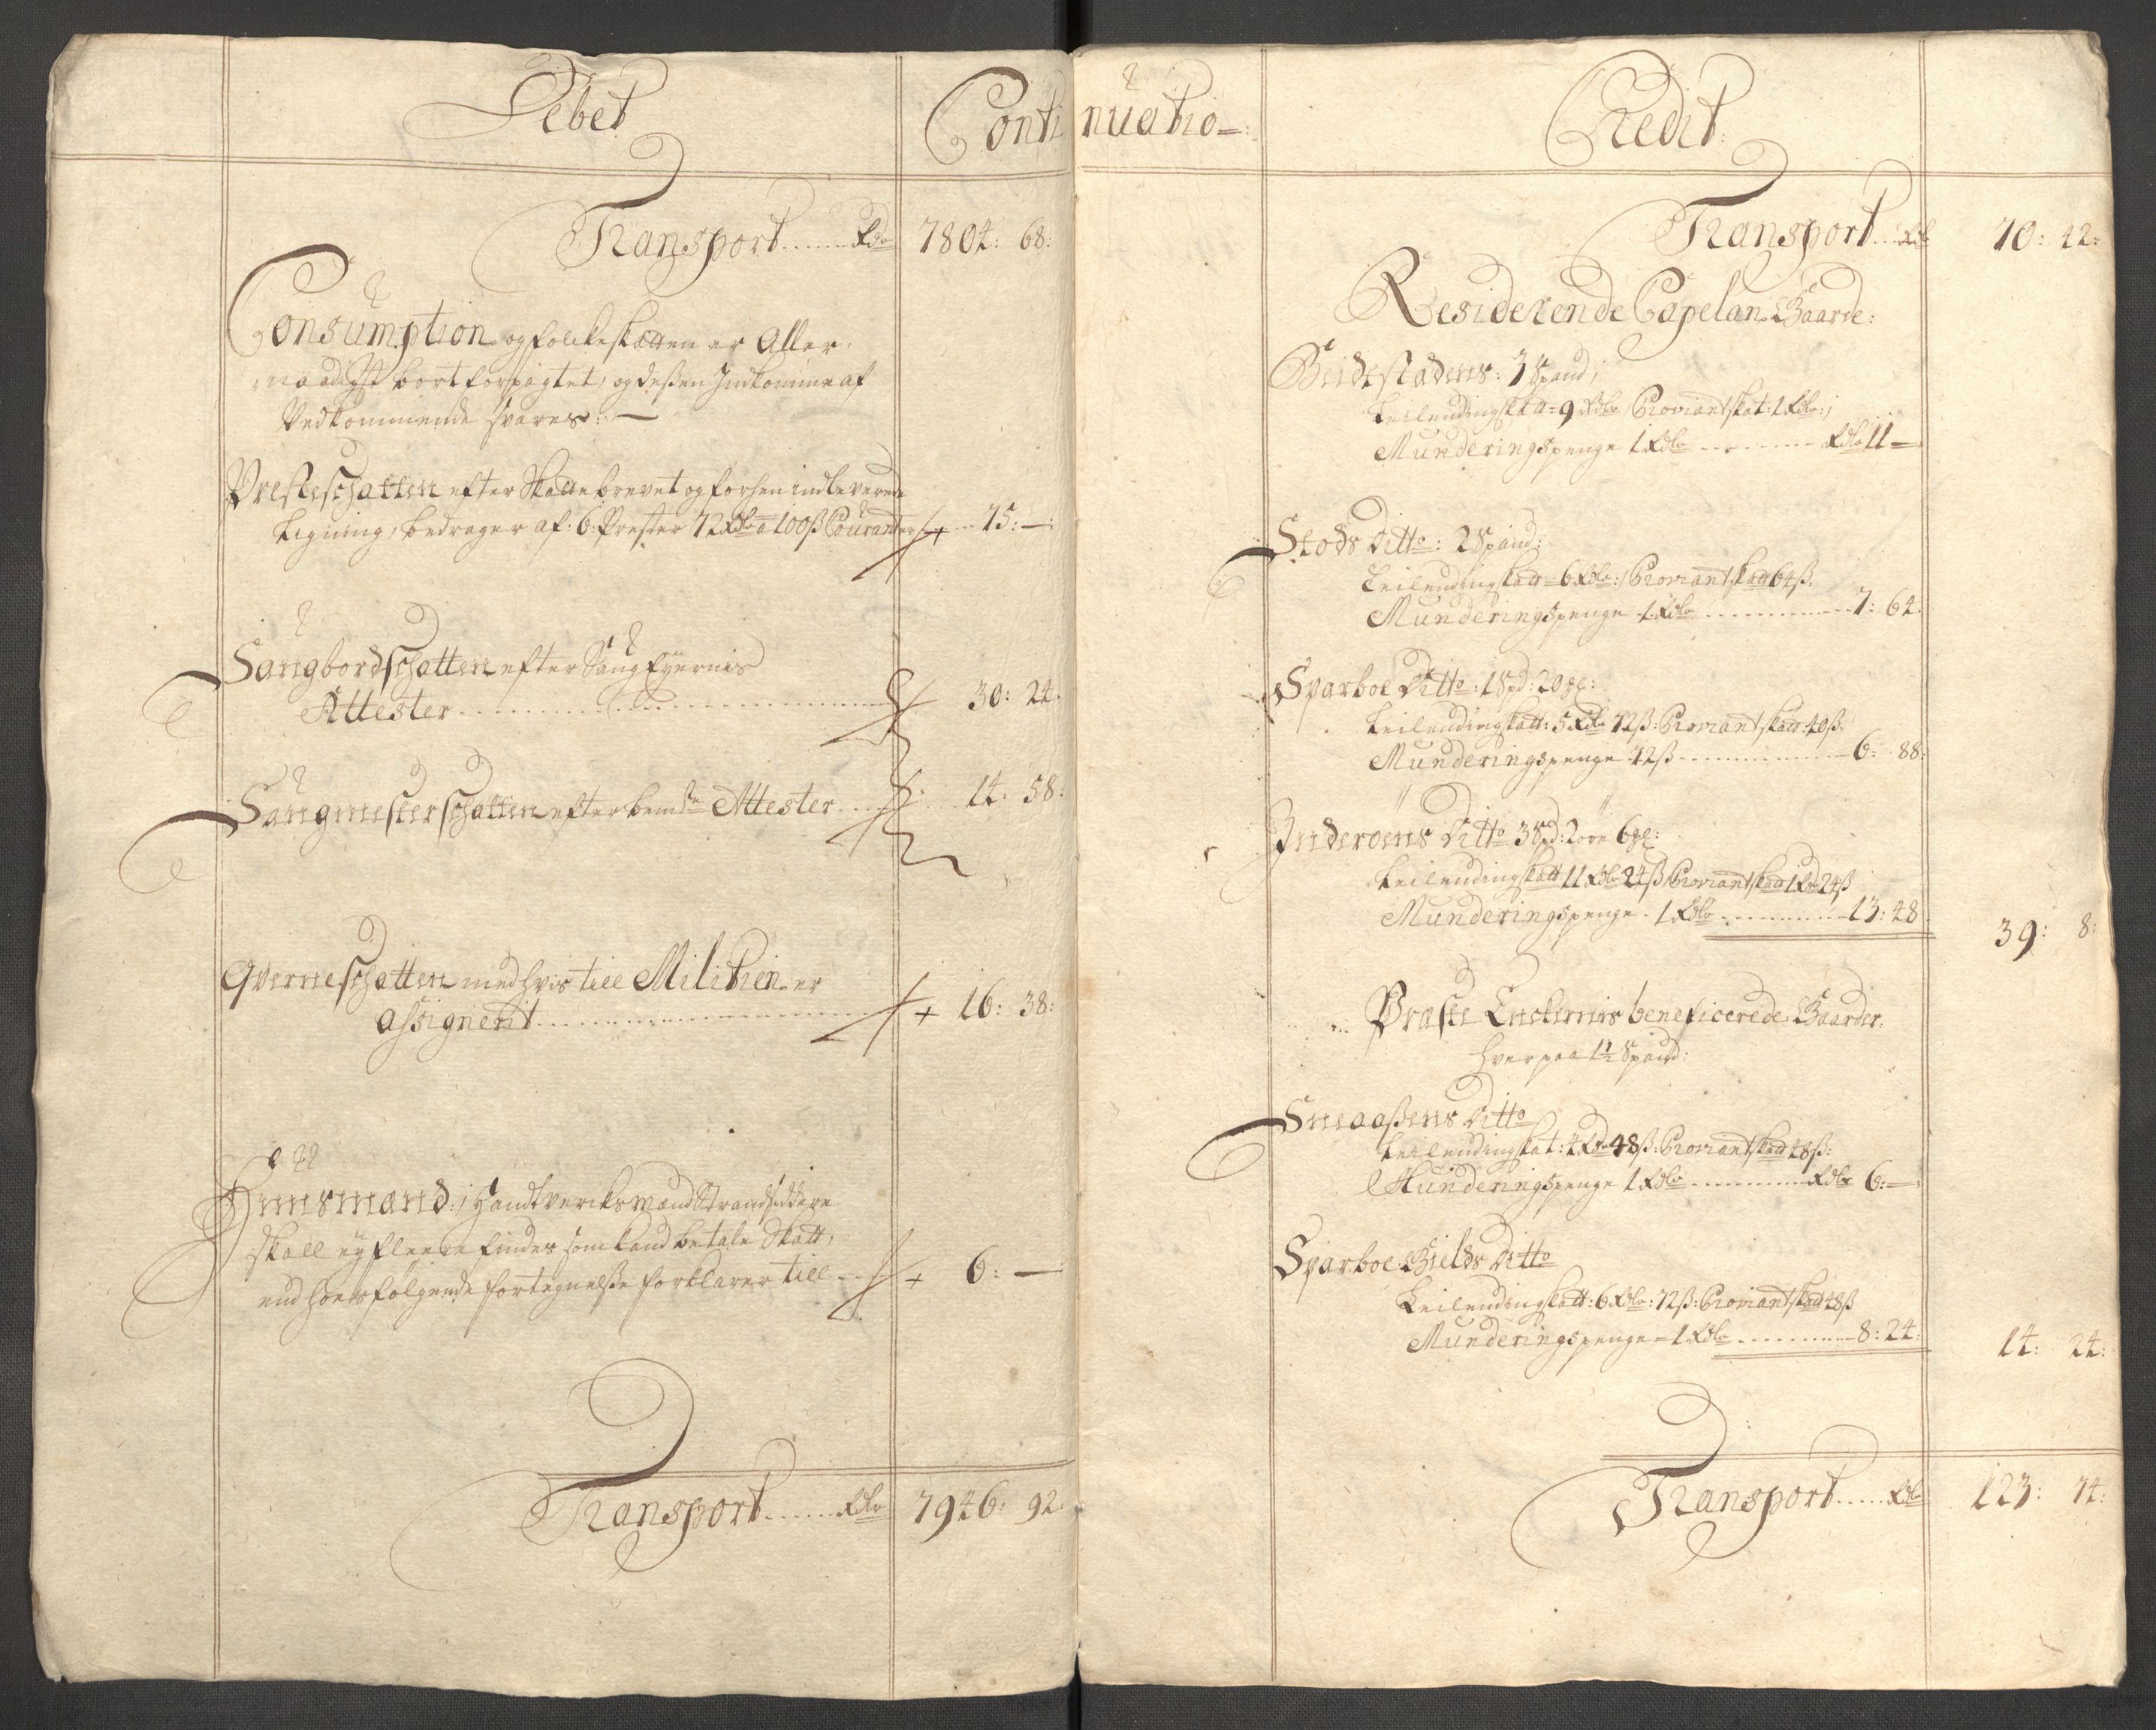 Debet
Continuatio
Transport ...... Rdr 7804: 68:
Consumption og folckeskatten er Aller
naadigst bortforpagtet, og deßen Indkomme af
Vedkommende svares: —
Presteschatten efter Skattebrevet og forhen indleverede
Ligning, bedrager af: 6: Prester 72 Rdr a 100 ß Couranter 75: —:
Saugbordschatten efter Saugfougernis
Attester ...... 30: 24.
Saugmesterschatten efter bemte Attester ...... 14: 58:
Qverneschatten med hvis till Militien er
assignerit ...... + 16: 38:
Huusmænd: Handtvercksmænd Strandsiddere
skall ey fleere findes som kand betale Skatt,
end hoesfølgende fortegnelße forklarer till ... + 6: —:
Transport ...... Rdr 7946: 92:
Credit
Transport ... Rdr 70: 42:
Residerende Capelan Gaarde:
Beidestadens: 3 Spand;
Leilendingskatt = 9 Rdr Proviantskat: 1 Rdr:;
Munderingspenge 1 Rdr ...... Rdr 11 —
Stods Ditto: 2 Spand:
Leilendingskatt = 6 Rdr: Proviantskatt 64 ß.
Munderingspenge 1 Rdr ...... 7: 64.
Sparboe Ditto: 1 Spd: 20 gl:
Leilendingskatt: 5 Rdr 72 ß: Proviantskatt: 40 ß.
Munderingspenge 72 ß ...... 6: 88:
Inderoens Ditto 3 Spd: 2 øre 6 gl:
Leilendingskatt 11 Rdr 24 ß Proviantskatt 1 Rd 24 ß
Munderingspenge - 1 Rdr ...... 13: 48
39: 8:
Præste Enckernis beneficerede Gaarder,
hver paa 1½ Spand:
Sneaaßens Ditto
Leilendingskat: 4 Rdr 48 ß: Proviantskatt 48 ß:
Munderingspenge 1 Rdr ...... Rdr 6: —
Sparboe Gields Ditto
Leilendingskatt: 6 Rdr: 72 ß: Proviantskatt 48 ß
Munderingspenge - 1 Rdr ...... 8: 24:
14: 24:
Transport ..... Rdr 123: 74: